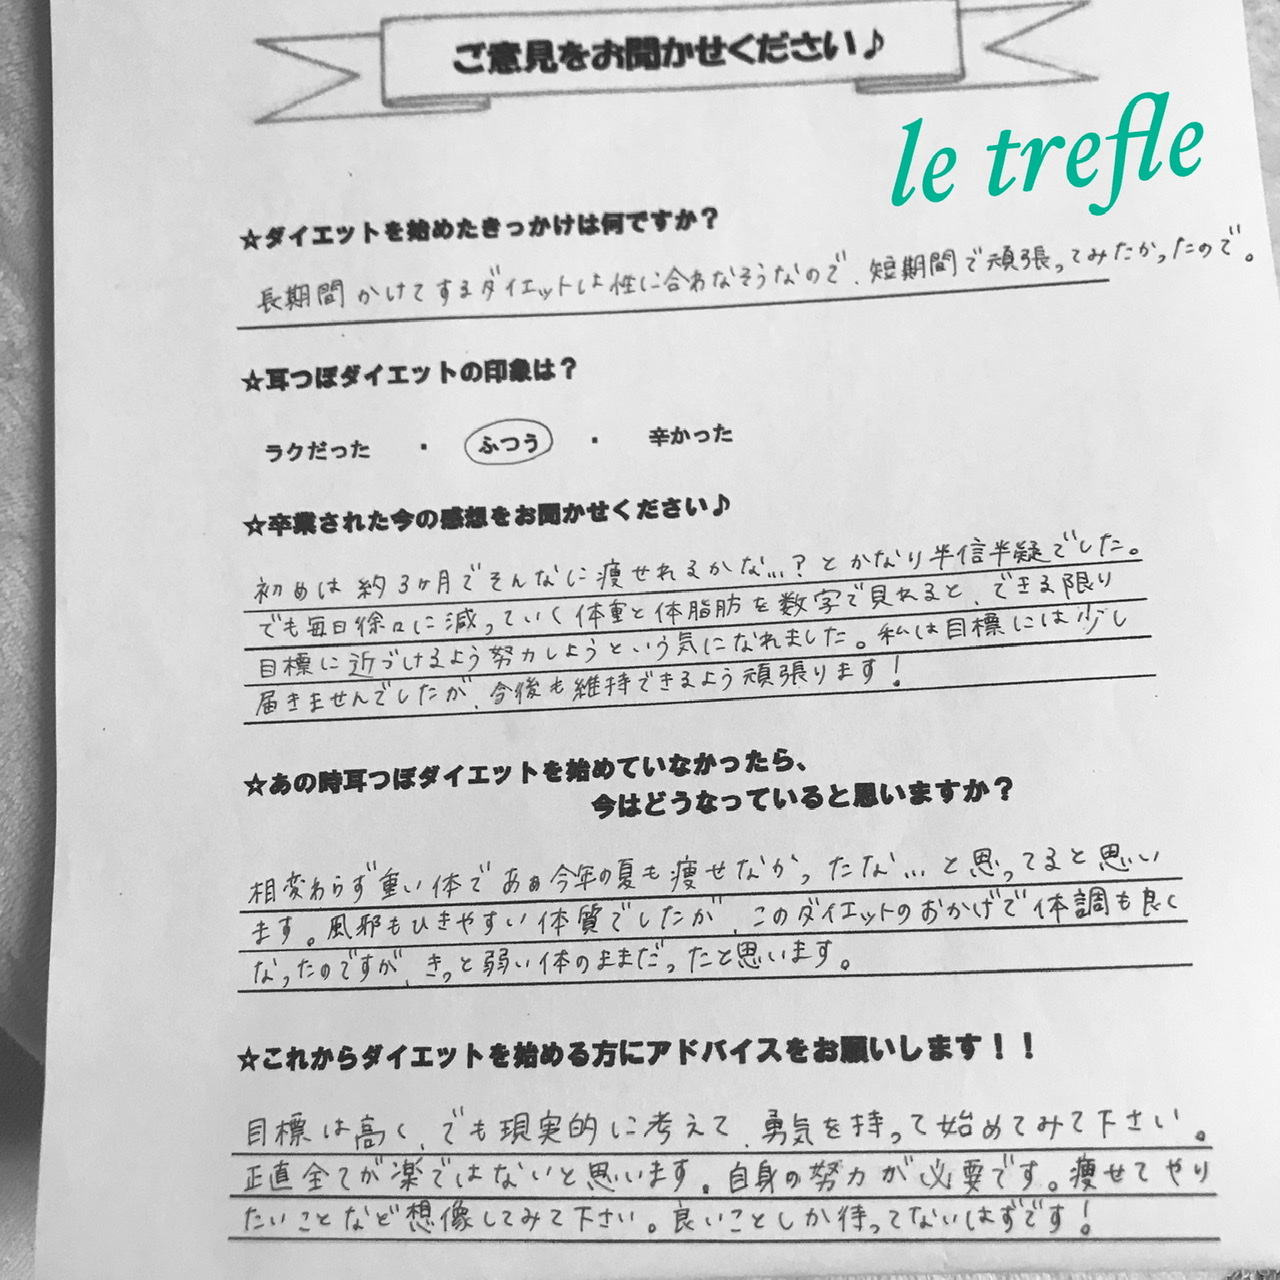 ご意見をお聞かせください♪
le trefle
☆ダイエットを始めたきっかけは何ですか？
長期間かけてするダイエットは性に合わなそうなので、短期間で頑張ってみたかったので。
☆耳つぼダイエットの印象は？
ラクだった ・ ふつう ・ 辛かった
☆卒業された今の感想をお聞かせください♪
初めは約3ヶ月でそんなに痩せれるかな…？とかなり半信半疑でした。
でも毎日徐々に減っていく体重と体脂肪を数字で見れると、できる限り
目標に近づけるよう努力しようという気になれました。私は目標には少し
届きませんでしたが、今後も維持できるよう頑張ります！
☆あの時耳つぼダイエットを始めていなかったら、
今はどうなっていると思いますか？
相変わらず重い体であぁ今年の夏も痩せなかったな…と思ってると思い
ます。風邪もひきやすい体質でしたが、このダイエットのおかげで体調も良く
なったのですが、きっと弱い体のままだったと思います。
☆これからダイエットを始める方にアドバイスをお願いします！！
目標は高く、でも現実的に考えて、勇気を持って始めてみて下さい。
正直全てが楽ではないと思います。自身の努力が必要です。痩せてやり
たいことなど想像してみて下さい。良いことしか待ってないはずです！